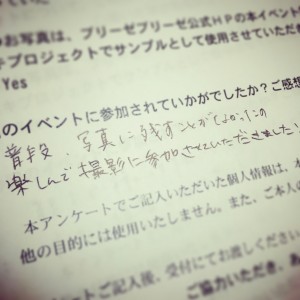 お写真は、ブリーゼブリーゼ公式HPの本イベント
プロジェクトでサンプルとして使用させていただき
Yes
のイベントに参加されていかがでしたか？ご感想
普段 写真に残すことがなかったの
楽しんで撮影に参加させていただきました!
本アンケートでご記入いただいた個人情報は、本
他の目的には使用いたしません。また、ご本人の
ートご記入後、受付にてお渡しください
ご協力いただき、あ